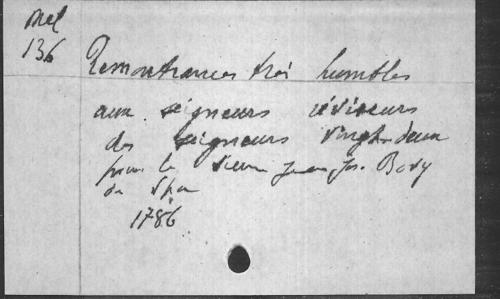 Mel
136
Remontrances très humbles
aux seigneurs réviseurs
des seigneurs vingt-deux
pour le sieur Jean Jos. Bovy
de Spa
1786